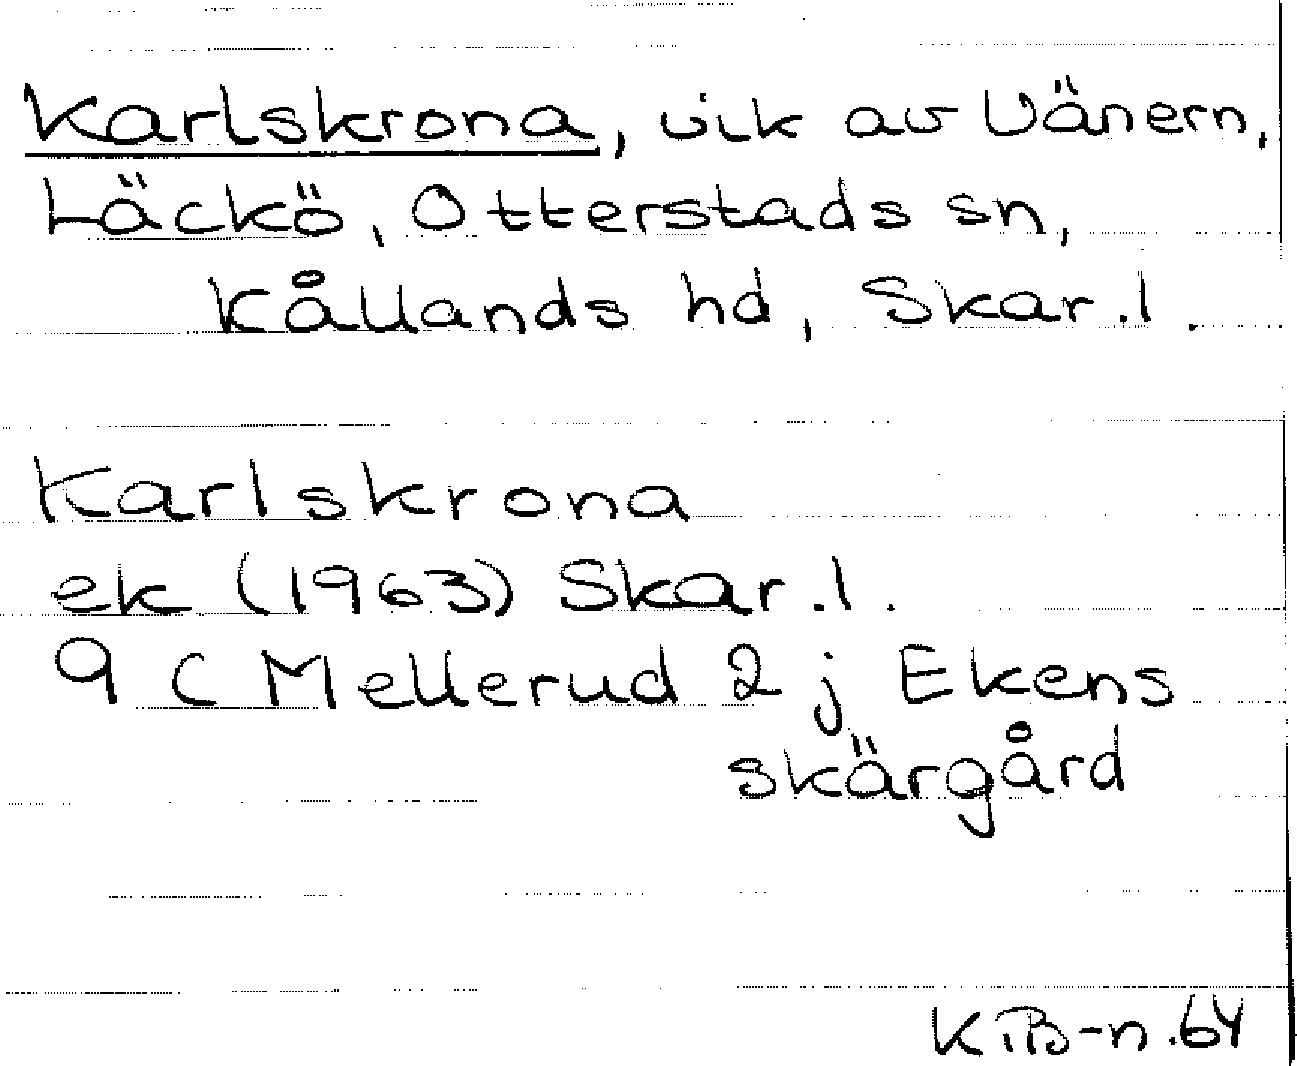 Karlskrona, vik av Vänern,
Läckö, Otterstads sn,
Kållands hd, Skar.l.
Karlskrona
ek (1963) Skar.l.
9 C Mellerud 2 j Ekens
skärgård
K.B-n.64